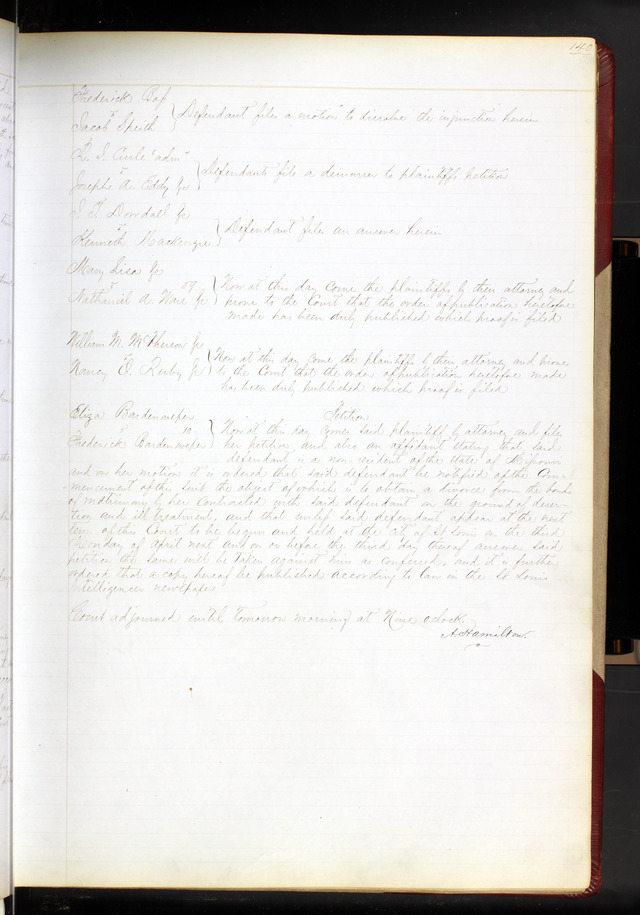 140
Frederick Bap
vs
Jacob Speith } Defendant files a motion to dissolve the injunction herein
L. S. Curle adm
vs
Joseph A. Eddy Jr } Defendants file a demurrer to plaintiffs petition
S. T. Dowdall Jr
vs
Kenneth Mackenzie } Defendant files an answer herein
Mary Lisa Jr
vs 09
Nathaniel A Ware Jr } Now at this day come the plaintiffs by their attorney and
prove to the Court that the order of publication heretofore
made has been duly published which proof is filed
William M. McPherson Jr
vs
Nancy D. Ruby Jr } Now at this day come the plaintiffs by their attorney and prove
to the Court that the order of publication heretofore made
has been duly published which proof is filed
Eliza Bardenmeper Petition
vs 10
Frederick Bardenmeper } Now at this day comes said plaintiff by attorney and files
her petition and also an affidavit stating that said
defendant is a non resident of the State of Missouri
and on her motion it is ordered that said defendant be notified of the Com-
mencement of this suit the object of which is to obtain a divorce from the bonds
of matrimony by her contracted with said defendant on the ground of deser-
tion and ill treatment, and that unless said defendant appear at the next
term of this Court to be begun and held at the city of St Louis on the third
Monday of April next and on or before the third day thereof answer said
petition the same will be taken against him as confessed, and it is further
ordered that a copy hereof be published according to law in the St Louis
Intelligencer newspaper
Court adjourned until tomorrow morning at Nine oclock.
A. Hamilton.